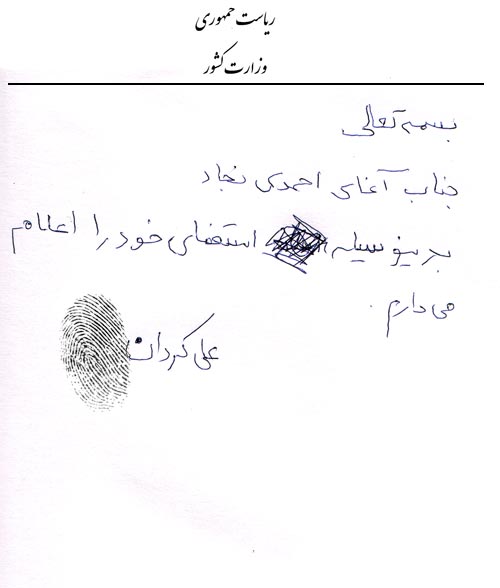 ریاست جمهوری
وزارت کشور
بسمه تعالی
جناب آغای احمدی نجاد
بدینو سیله استعفای خود را اعلام
می دارم .
علی کردان